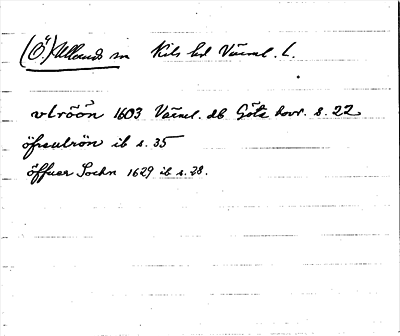 (Ö.) Ullerud sn Kils hd Värml. l.
vlröön 1603 Värml. db Göta hovr. s. 22
öfreulrön ib s. 35
öffuer Sochn 1629 ib s. 28.